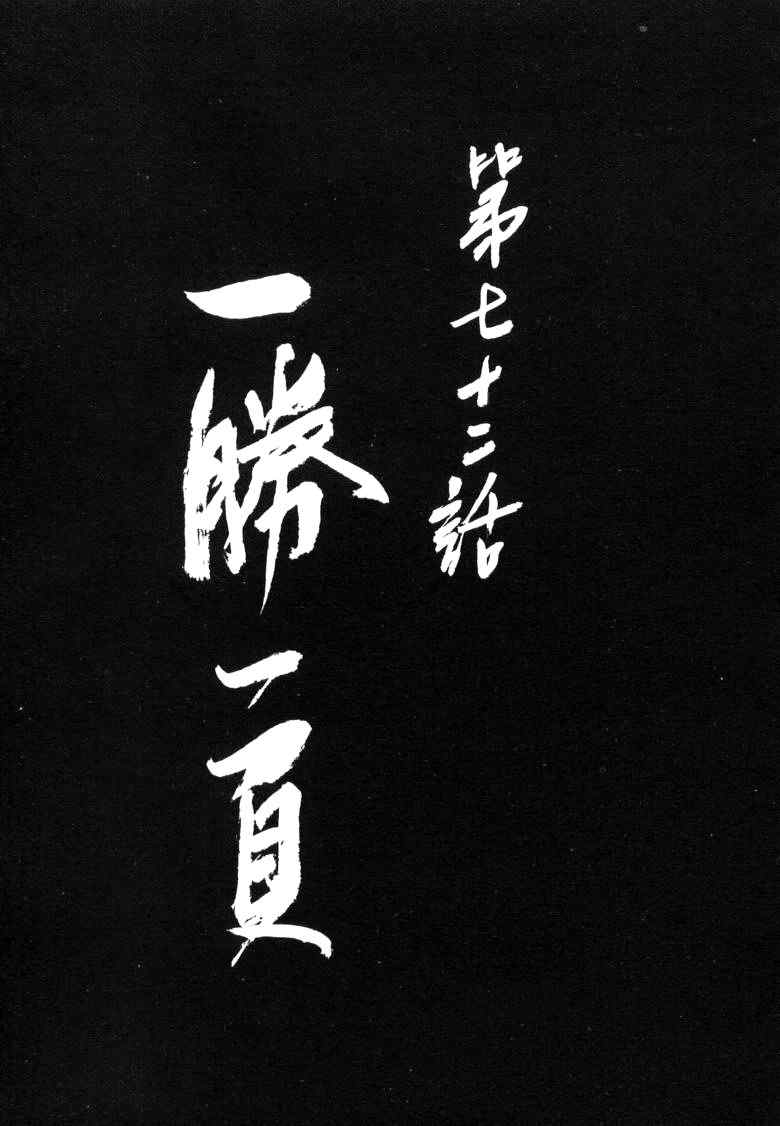 第七十二話
一勝一負